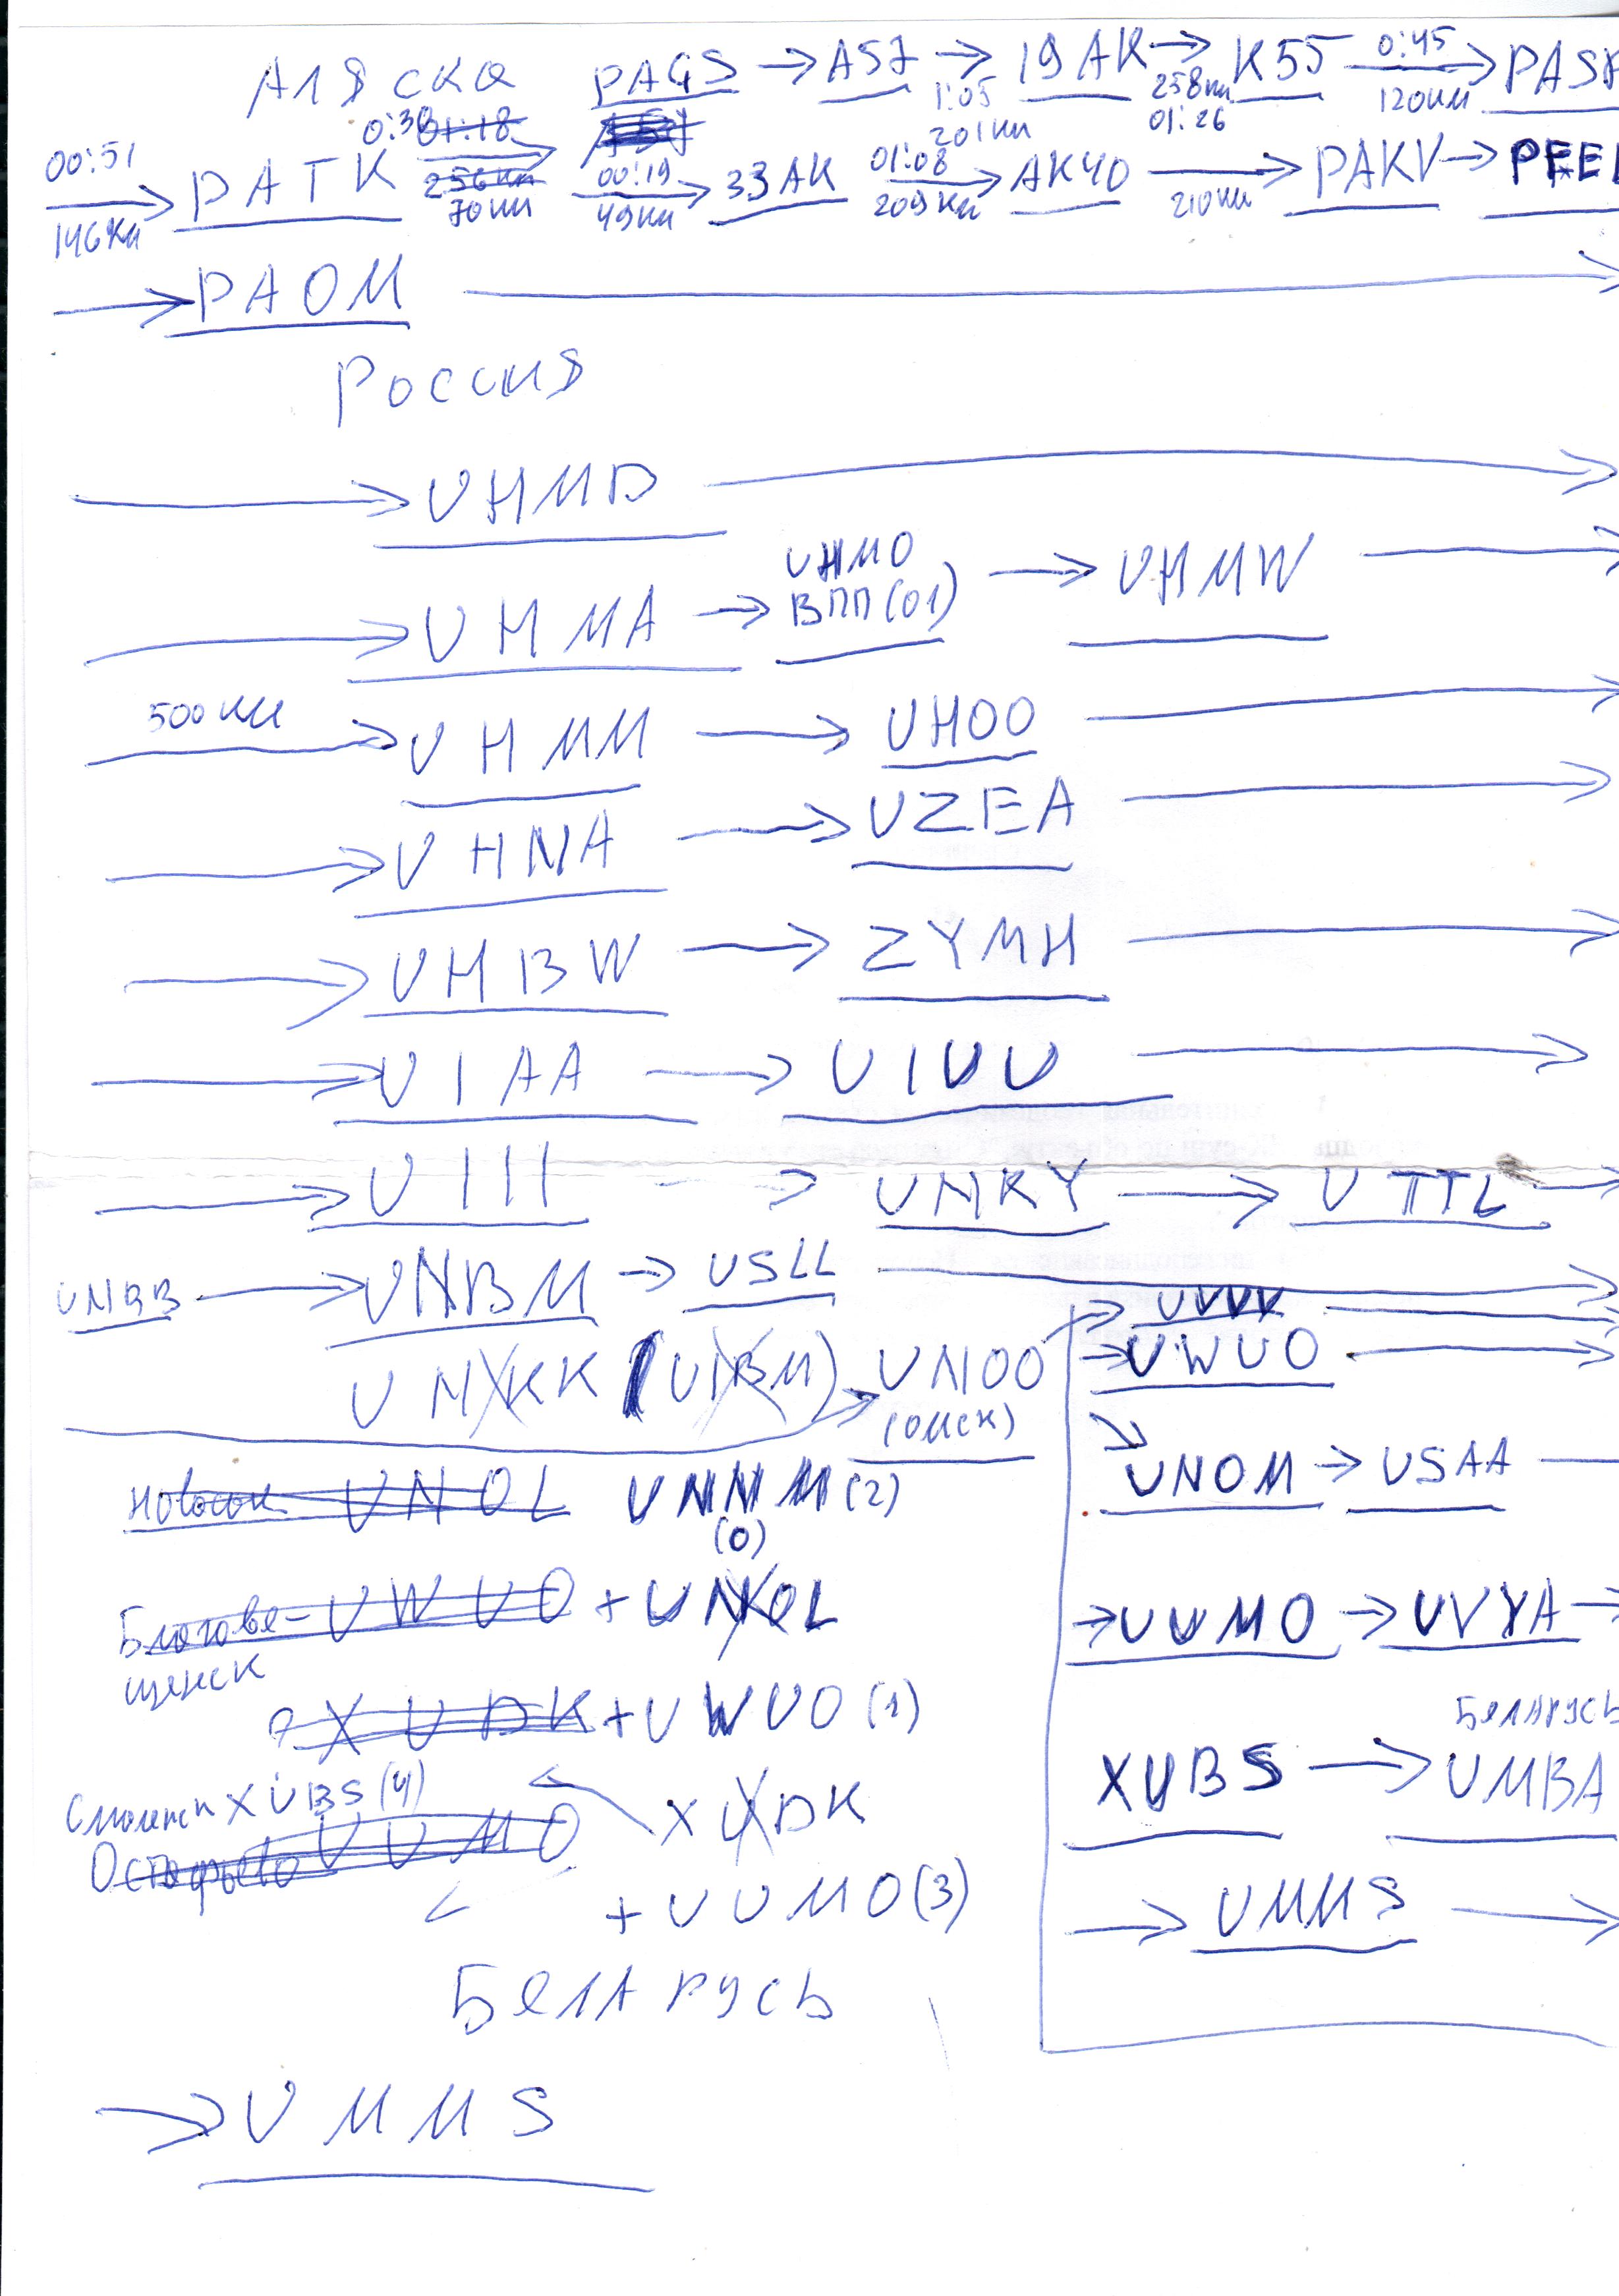 Аляска PAGS → A57 → 19AK → K55 0:45 →
1:05 258км 120км
201км 01:26
00:51 0:30 01:18
→ PATK → 00:19 → 33AK 01:08 → AK40 → PAKV →
146км 256км 70км 49км 209км 210км
→ PAOM →
Россия
→ UHMD →
→ UHMA → UHMO ВПП(01) → UHMW →
500км → UHMM → UHOO →
→ UHNA → UZEA →
→ UHBW → ZYMH →
→ UIAA → UIUU →
→ UIII → UNKY → UTTL →
UNBB → UNBM → USLL →
→ UVVV →
UNKK (UNBM) → UNOO → UWUO →
(Омск)
→ UNOM → USAA
UNOL UNNM(2)
(0)
Благове- UWUO + UNOL → UUMO → UVYA →
щенск
? XUDK + UWUO(1)
Беларусь
XUBS → UMBA
Смоленск XUBS(4)
XUDK
Остафьево UUMO
+ UUMO(3) → UMMS →
Беларусь
→ UMMS